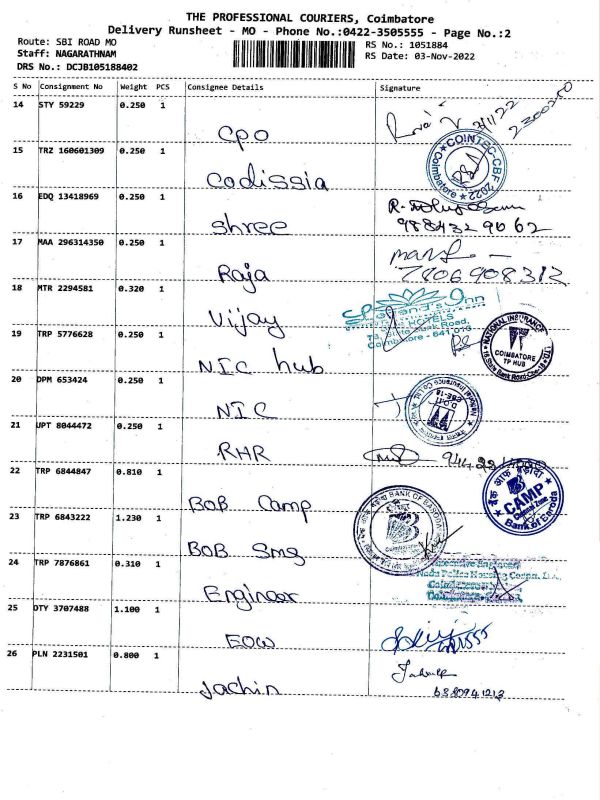 THE PROFESSIONAL COURIERS, Coimbatore
Delivery Runsheet - MO - Phone No.:0422-3505555 - Page No.:2
Route: SBI ROAD MO
RS No.: 1051884
Staff: NAGARATHNAM
RS Date: 03-Nov-2022
DRS No.: DCJB105188402
S No Consignment No Weight PCS Consignee Details Signature
14 STY 59229 0.250 1
CPO
15 TRZ 160601309 0.250 1
Codissia
COINTEC-CBF 2022
Coimbatore
16 EDQ 13418969 0.250 1
Shree
17 MAA 296314350 0.250 1
Raja
7806908312
18 MTR 2294581 0.320 1
Vijay
HOTELS
State Bank Road,
Coimbatore - 641 018
19 TRP 5776628 0.250 1
NIC hub
NATIONAL INSURANCE
COIMBATORE
TP HUB
20 DPM 653424 0.250 1
NIC
21 UPT 8044472 0.250 1
RHR
22 TRP 6844847 0.810 1
BOB Camp
बैंक ऑफ बड़ौदा
CAMP
Bank of Baroda
23 TRP 6843222 1.230 1
BOB Smg
BANK OF BARODA
24 TRP 7876861 0.310 1
Engineer
25 DTY 3707488 1.100 1
EOW
26 PLN 2231501 0.800 1
Jachin